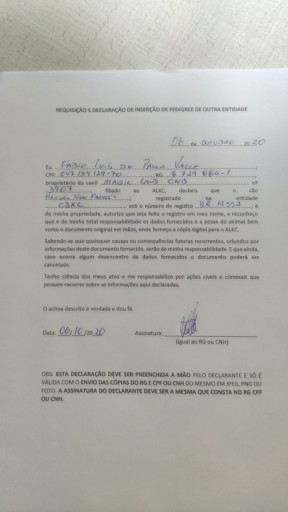 REQUISIÇÃO E DECLARAÇÃO DE INSERÇÃO DE PEDIGREE DE OUTRA ENTIDADE
06 de outubro de 20
Eu Fabio Luis de Paula Valle
CPF RG
proprietário do canil nº
3907 filiado ao ALKC, declaro que o cão
registrado na entidade
CBKC sob o número de registro é
de minha propriedade, autorizo que seja feito o registro em meu nome, e reconheço
que é de minha total responsabilidade os dados fornecidos e a prova do animal bem
como o documento original em mãos, onde forneço a cópia digital para o ALKC.
Sabendo-se que quaisquer causas ou consequências futuras recorrentes, oriundos por
informações deste documento fornecido, serão de minha responsabilidade. E que ainda,
caso ocorra algum desencontro de dados fornecidos o documento poderá ser
cancelado.
Tenho ciência dos meus atos e me responsabilizo por ações cíveis e criminais que
possam recorrer sobre as informações aqui declaradas.
O acima descrito é verdade e dou fé
Data: 06/10/2020 Assinatura:
(Igual ao RG ou CNH)
OBS: ESTA DECLARAÇÃO DEVE SER PREENCHIDA A MÃO PELO DECLARANTE E SÓ É
VÁLIDA COM O ENVIO DAS CÓPIAS DO RG E CPF OU CNH DO MESMO EM JPEG, PNG OU
FOTO. A ASSINATURA DO DECLARANTE DEVE SER A MESMA QUE CONSTA NO RG CPF
OU CNH.